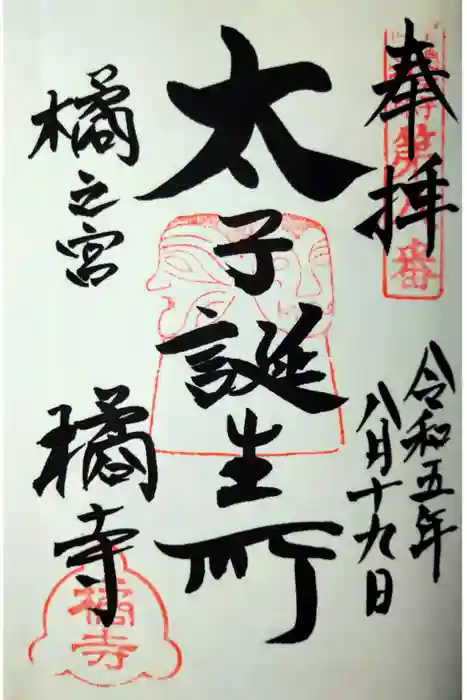 奉拝
第八番
令和五年
八月十九日
太子誕生所
橘之宮
橘寺
橘寺